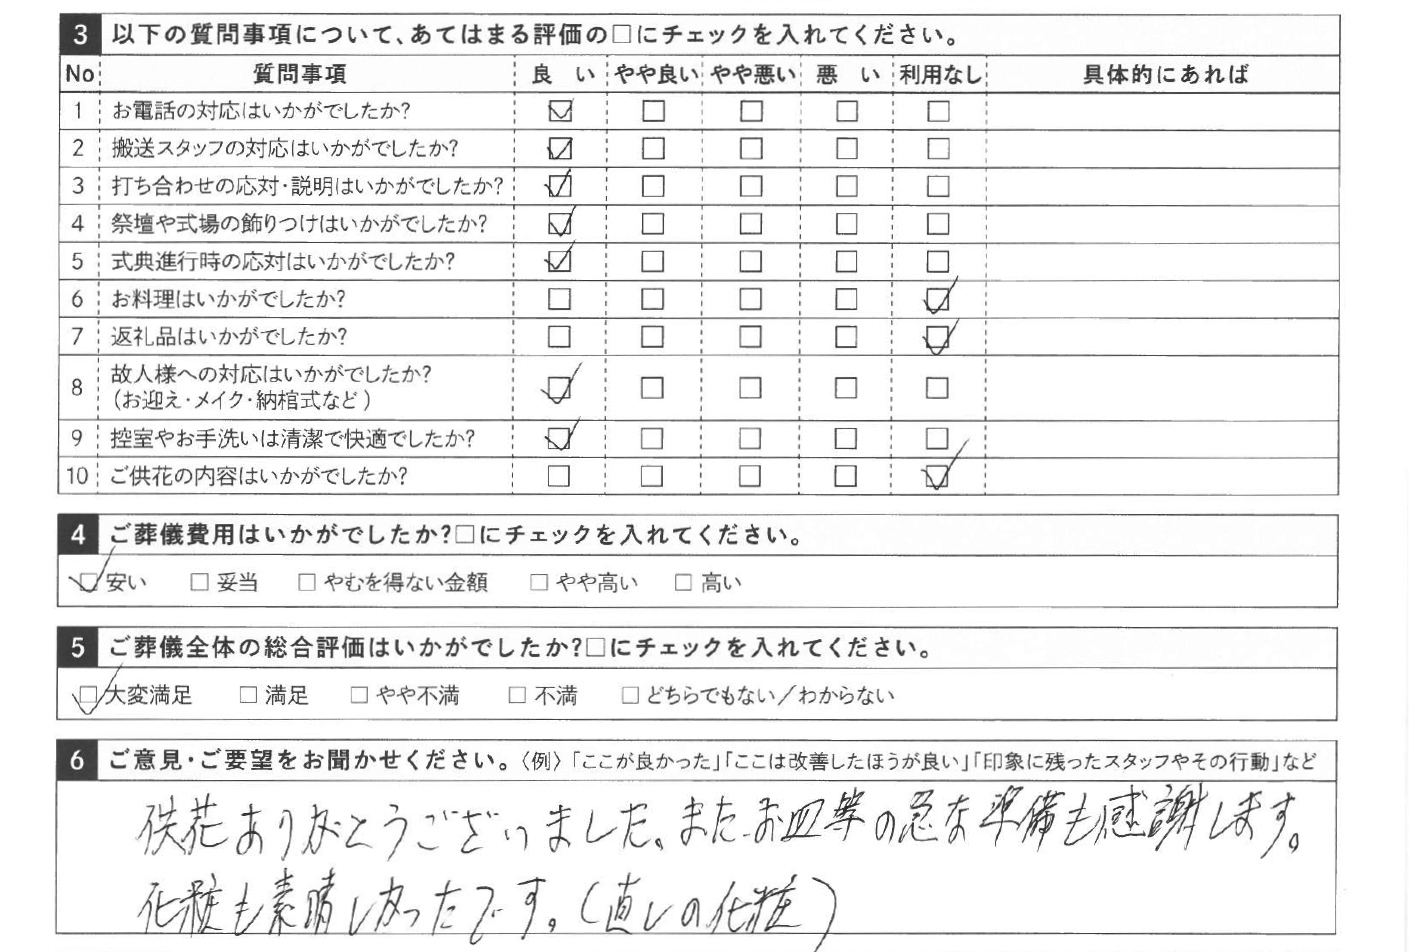 3 以下の質問事項について、あてはまる評価の□にチェックを入れてください。
No 質問事項 良い やや良い やや悪い 悪い 利用なし 具体的にあれば
1 お電話の対応はいかがでしたか? ☑ □ □ □ □
2 搬送スタッフの対応はいかがでしたか? ☑ □ □ □ □
3 打ち合わせの応対・説明はいかがでしたか? ☑ □ □ □ □
4 祭壇や式場の飾りつけはいかがでしたか? ☑ □ □ □ □
5 式典進行時の応対はいかがでしたか? ☑ □ □ □ □
6 お料理はいかがでしたか? □ □ □ □ ☑
7 返礼品はいかがでしたか? □ □ □ □ ☑
8 故人様への対応はいかがでしたか? ☑ □ □ □ □
(お迎え・メイク・納棺式など)
9 控室やお手洗いは清潔で快適でしたか? ☑ □ □ □ □
10 ご供花の内容はいかがでしたか? □ □ □ □ ☑
4 ご葬儀費用はいかがでしたか?□にチェックを入れてください。
☑安い □妥当 □やむを得ない金額 □やや高い □高い
5 ご葬儀全体の総合評価はいかがでしたか?□にチェックを入れてください。
☑大変満足 □満足 □やや不満 □不満 □どちらでもない/わからない
6 ご意見・ご要望をお聞かせください。〈例〉「ここが良かった」「ここは改善したほうが良い」「印象に残ったスタッフやその行動」など
供花ありがとうございました。またお皿等の急な準備も感謝します。
化粧も素晴しかったです。(直しの化粧)